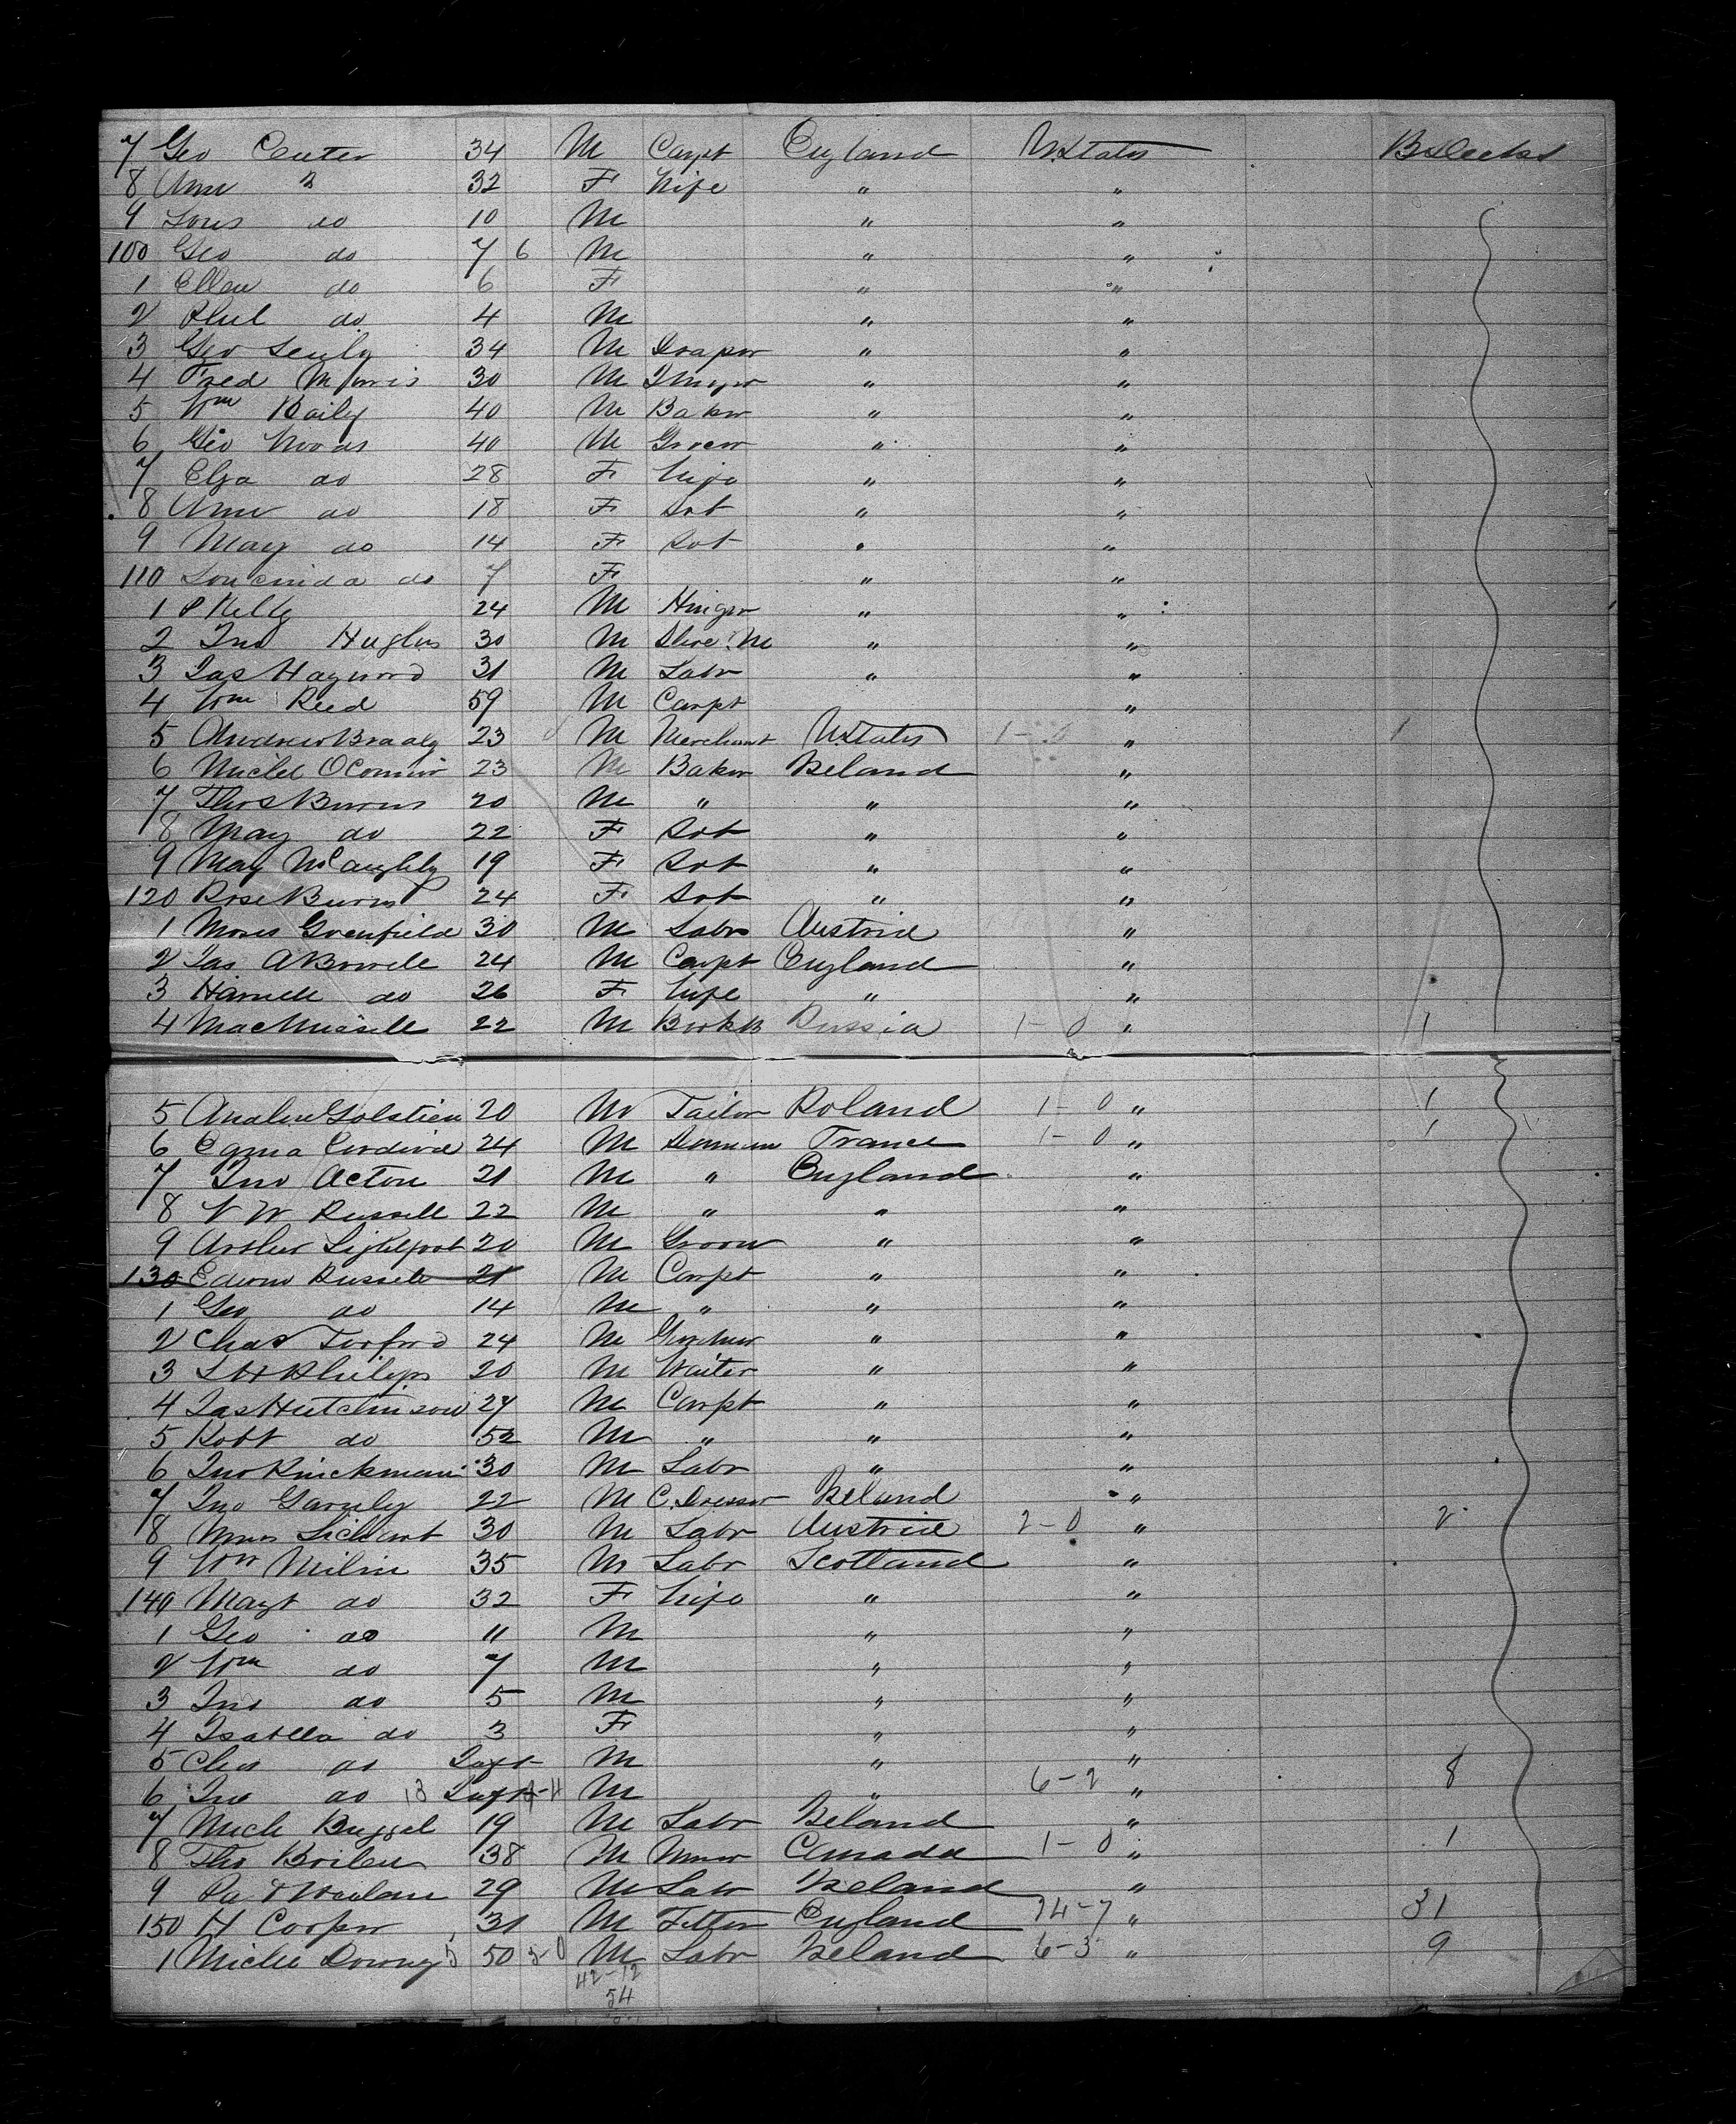 7 Geo Center 34 M Carpt England UStates B Decks
8 Ann " 32 F Wife " "
9 Louis do 10 M " "
100 Geo do 7 6 M " "
1 Ellen do 6 F " "
2 Phil do 4 M " "
3 Geo 34 M Draper " "
4 Fred Morris 30 M " "
5 Wm Baily 40 M Baker " "
6 Geo Woods 40 M Grocer " "
7 Elza do 28 F Wife " "
8 Ann do 18 F Svt " "
9 May do 14 F Svt " "
110 Loucinda do 7 F " "
1 P Kelly 24 M " "
2 Jno Hughes 30 M Shoe M " "
3 Jas Hayword 31 M Labr " "
4 Wm Reed 59 M Carpt "
5 Andrew Braaly 23 M Merchant UStates 1-0 " 1
6 Michl OConnor 23 M Baker Ireland "
7 Thos Burns 20 M " " "
8 May do 22 F Svt " "
9 May McCaughly 19 F Svt " "
120 Rose Burns 24 F Svt " "
1 Moses Greenfield 30 M Labr Austria "
2 Jas A 24 M Carpt England "
3 do 26 F Wife " "
4 22 M Russia 1-0 " 1
5 20 M Tailor Poland 1-0 " 1
6 24 M France 1-0 " 1
7 Jno Acton 21 M " England "
8 W Russell 22 M " " "
9 Arthur Lightfoot 20 M Groom " "
130 Edwin Russell 21 M Carpt " "
1 Geo do 14 M " " "
2 Chas 24 M " "
3 Philips 20 M Waiter " "
4 Jas Hutchinson 27 M Carpt " "
5 Robt do 52 M " " "
6 Jno 30 M Labr " "
7 Jno 22 M C. Dresser Ireland "
8 30 M Labr Austria 2-0 " 2
9 Wm Milne 35 M Labr Scotland "
140 Magt do 32 F Wife " "
1 Geo do 11 M " "
2 Wm do 7 M " "
3 Jno do 5 M " "
4 Isabella do 3 F " "
5 Chas do Inft M " "
6 Jno do 13 Inft M " 6-2 " 8
7 Mich 19 M Labr Ireland "
8 Tho 38 M Miner Canada 1-0 " 1
9 29 M Labr Ireland "
150 H Cooper 31 M Fitter England 24-7 " 31
1 Michl Downey 50 M Labr Ireland 6-3 " 9
42-12
54